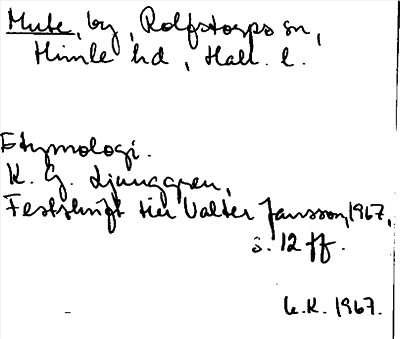 Mute, by, Rolfstorps sn,
Himle hd, Hall. l.
Etymologi.
K. G. Ljunggren,
Festskrift till Valter Jansson, 1967,
s. 12 ff.
K.K. 1967.